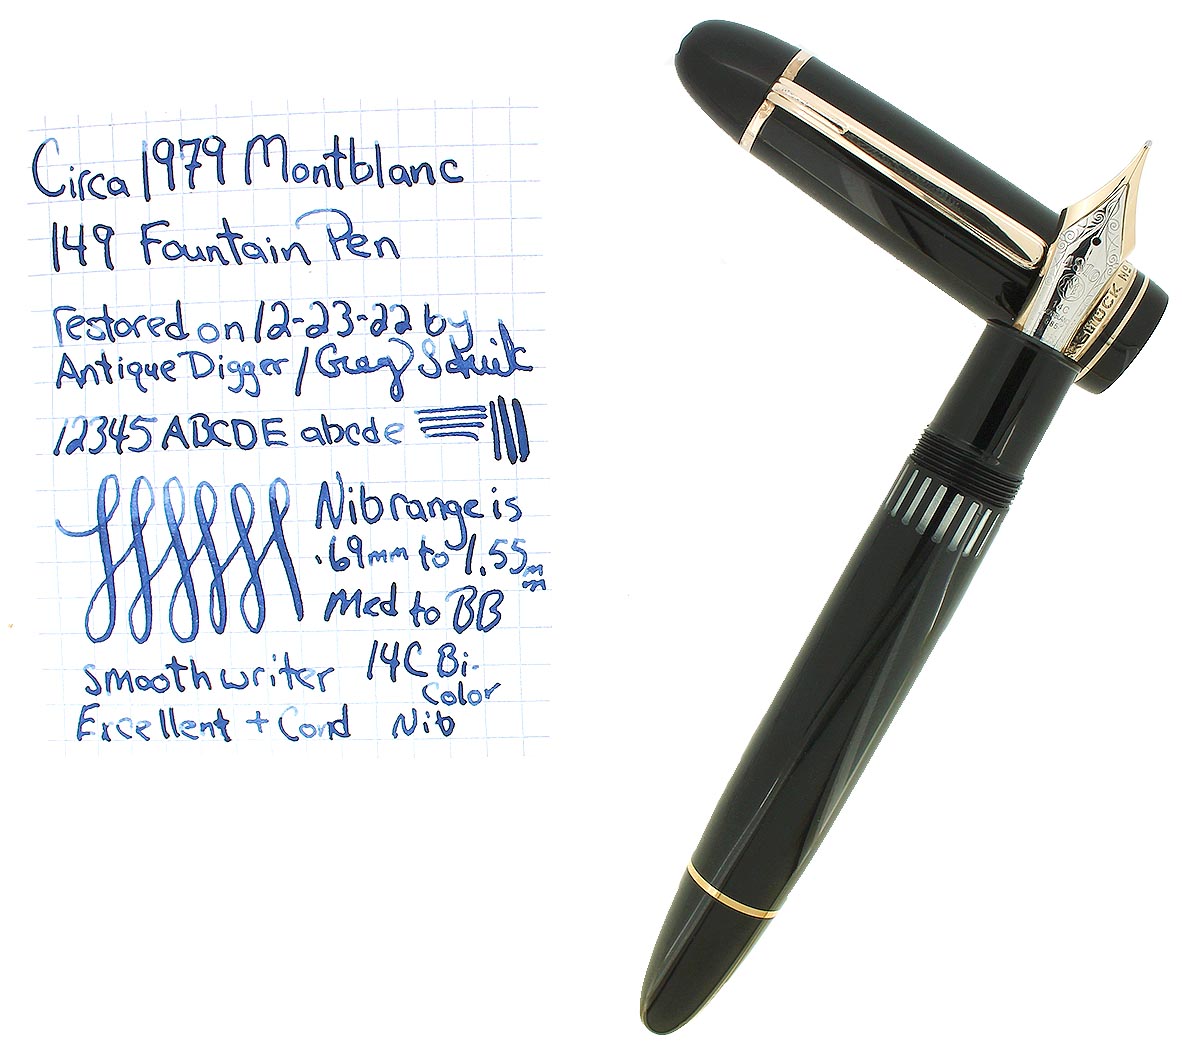 Circa 1979 Montblanc
149 Fountain Pen
restored on 12-23-22 by
Antique Digger / Greg
12345 ABCDE abcde
Nib range is
.69mm to 1.55mm
Med to BB
smooth writer
14C Bi-
Color
Nib
Excellent + Cond
STÜCK Nº